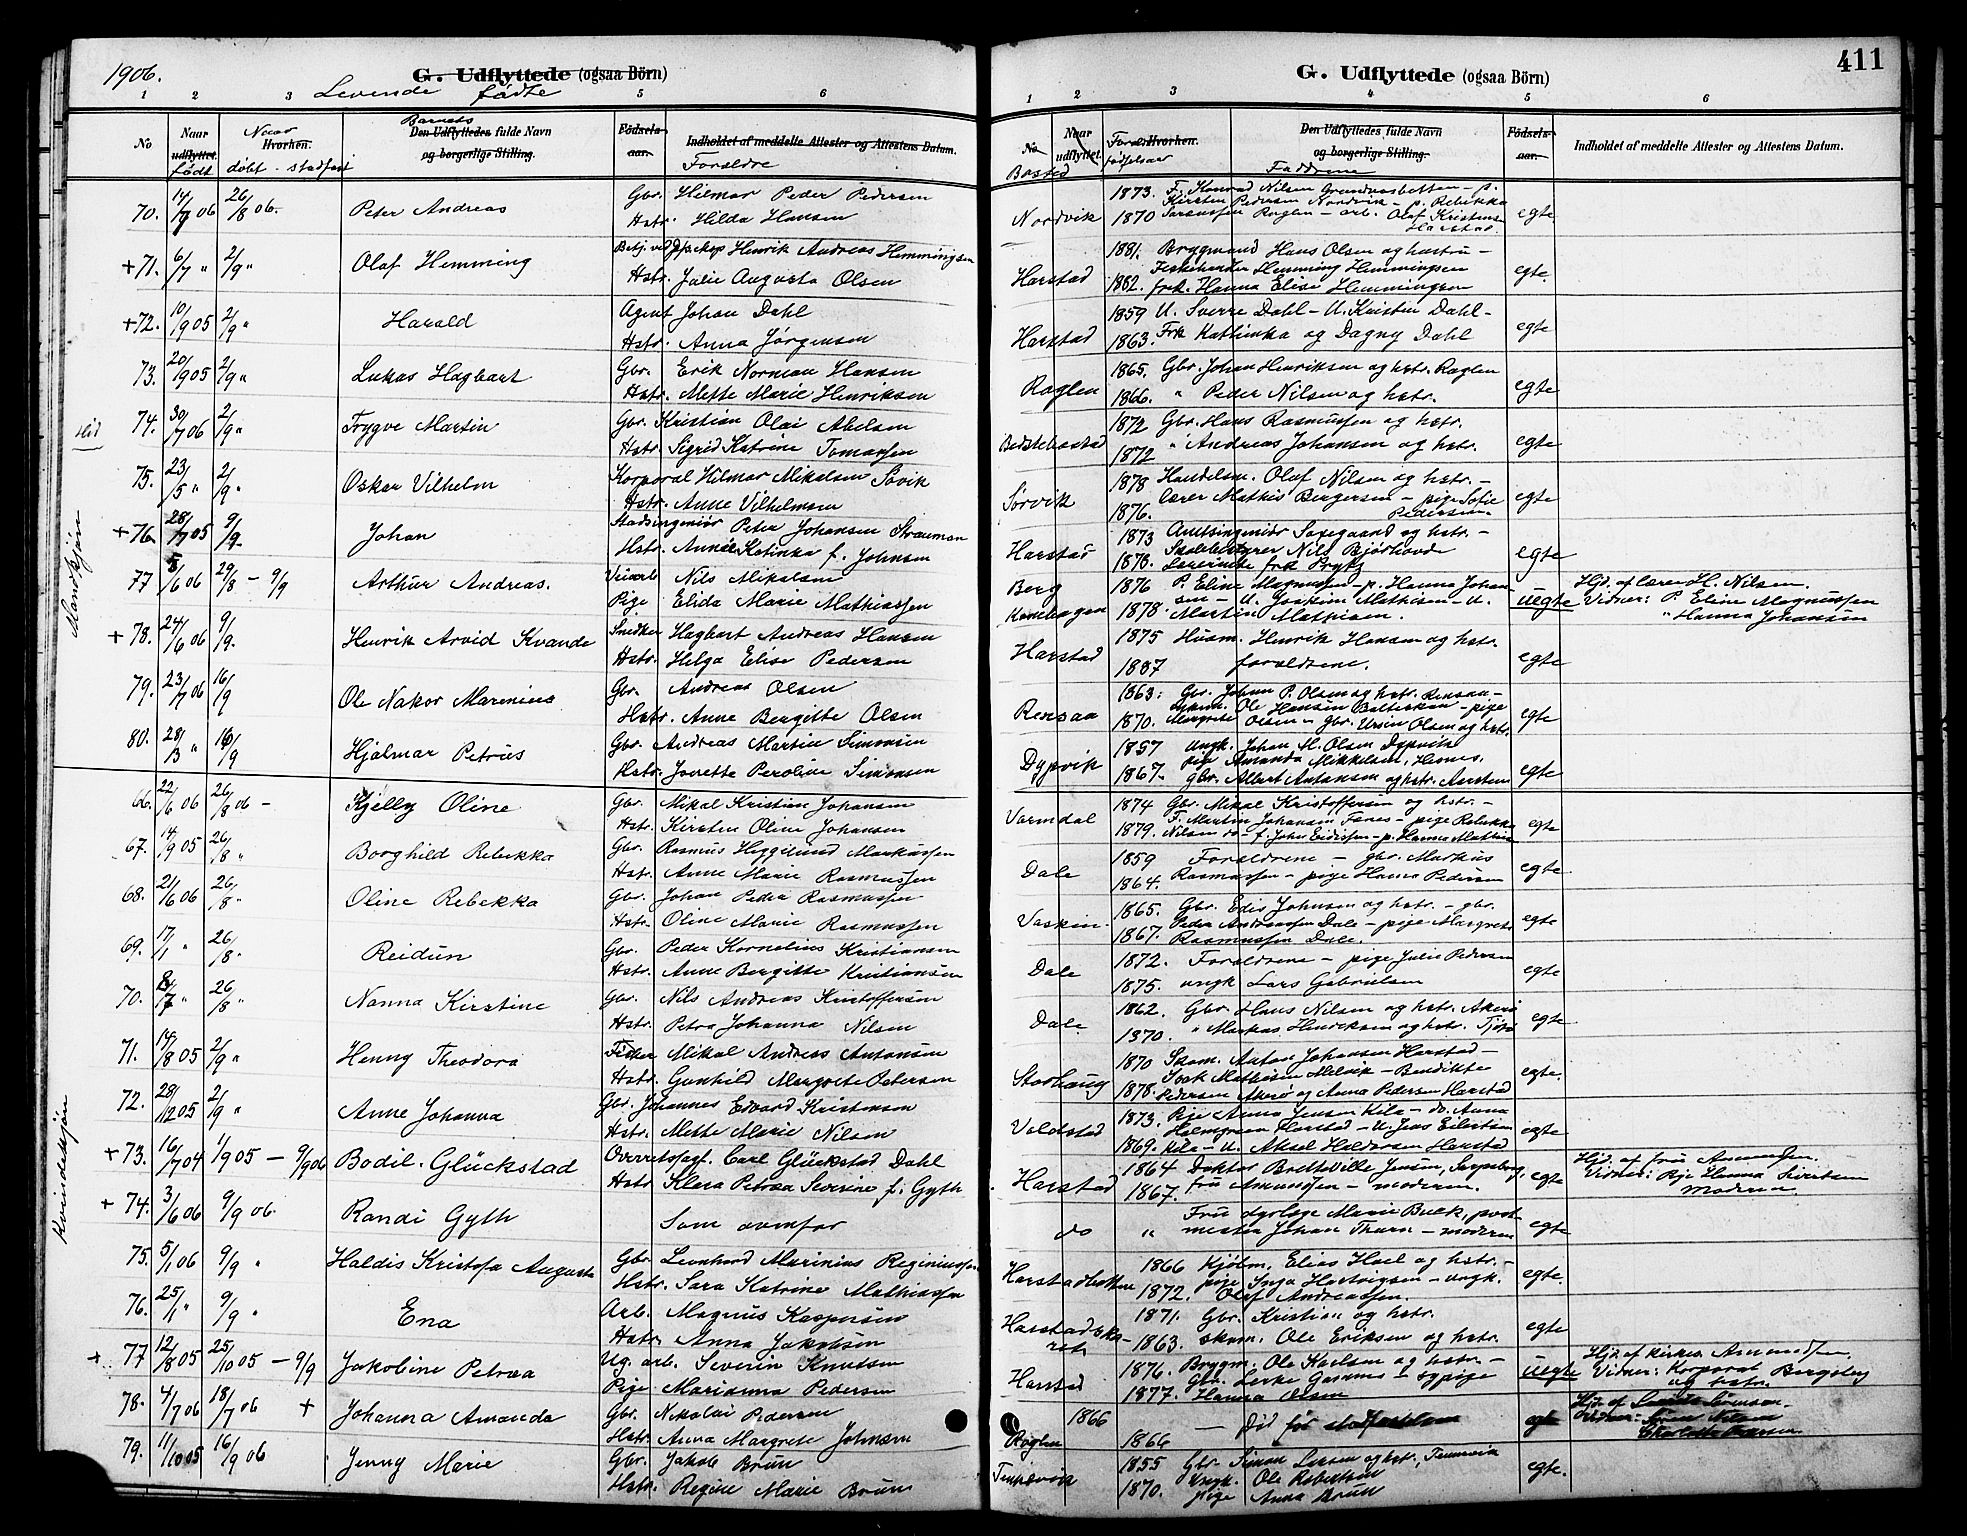 1906.
G. Udflyttede (ogsaa Börn)
Levende fødte
1 2 3 5 6
No Naar udflyttet. født Naar Hvorhen. døbt - stadfæst Barnets Den Udflyttedes fulde Navn og borgerlige Stilling. Födsels-aar. Indholdet af meddelte Attester og Attestens Datum. Forældre
Mandkjön
70. 14/7 06 26/8 06. Peter Andreas Gbr. Hilmar Peder Pedersen
Hstr. Hilda Hansen
+71. 6/7 " 2/9 " Olaf Hemming Henrik Andreas Hemmingsen
Hstr. Julie Augusta Olsen
+72. 10/9 05 2/9 " Harald Agent Johan Dahl
Hstr. Anna Jørgensen
73. 20/9 05 2/9 " Lukas Hagbart Gbr. Erik Norman Hansen
Hstr. Mette Marie Henriksen
74. 30/7 06 2/9 " Trygve Martin Gbr. Kristian Olai Abelsen
Hstr. Sigrid Katrine Tomassen
75. 23/5 " 2/9 " Oskar Vilhelm Korporal Hilmar Mikalsen Søvik
Hstr. Anne Vilhelmsen
+76. 28/7 05 9/9 Johan Stadsingeniør Peter Johansen Strauman
Hstr. Katinka f. Johnsen
77 5/6 06 29/8 - 9/9 Arthur Andreas. Veiarb Nils Mikalsen
Pige Elida Marie Mathiassen
+78. 24/6 06 9/9. Henrik Arvid Kvande Snedker Hagbart Andreas Hansen
Hstr. Helga Elise Pedersen
79. 23/7 06 16/9 Ole Nakor Marenius Gbr. Andreas Olsen
Hstr. Anne Bergitte Olsen
80. 28/3 " 16/9 Hjalmar Petrus Gbr. Andreas Martin Simonsen
Hstr. Jorette Peroline Simonsen
Kvindekjön
66. 22/6 06 26/8 06 - Kjelly Oline Gbr. Mikal Kristian Johansen
Hstr. Kirsten Oline Johansen
67. 14/9 05 26/8 " Borghild Rebekka Gbr. Rasmus Heggelund Markussen
Hstr. Anne Marie Rasmussen
68. 21/6 06 26/8 " Oline Rebekka Gbr. Johan Peder Rasmussen
Hstr. Oline Marie Rasmussen
69. 17/1 " 26/8 " Reidun Gbr. Peder Kornelius Kristiansen
Hstr. Anne Bergitte Kristiansen
70. 8/7 " 26/8 " Nanna Kirstine Gbr. Nils Andreas Kristoffersen
Hstr. Petra Johanna Nilsen
71. 14/8 05 2/9 " Henny Theodora Fisker Mikal Andreas Antonsen
Hstr. Gunhild Margrete Petersen
72. 28/12 05 2/9 " Anne Johanna Gbr. Johannes Edvard Kristensen
Hstr. Mette Marie Nilsen
+73. 16/7 04 1/9 05 - 9/9 06 Bodil. Glückstad Overretssagf. Carl Glückstad Dahl
Hstr Klara Petrea Severine f. Gyth
+74. 3/6 06 9/9 06. Randi Gyth Som ovenfor
75. 5/1 06 9/9 " Haldis Kristofa Augusta Gbr. Leonhard Marinius Reginiussen
Hstr. Sara Katrine Mathiassen
76. 25/1 " 9/9 " Ena Arb. Magnus Kaspersen
Hstr. Anna Jakobsen
+ 77 12/8 05 25/10 05 - 9/9 Jakobine Petrea Ug. arb. Severin Knutsen
Pige Marianna Pedersen
78. 4/7 06 18/7 06 + Johanna Amanda Gbr. Nikolai Pedersen
Hstr. Anna Margrete Johnsen
79. 11/10 05 16/9 06 Jenny Marie Gbr. Jakob Brun
Hstr. Regine Marie Brun
G. Udflyttede (ogsaa Börn)
411
1 2 3 4 5 6
No Bosted Naar udflyttet. Hvorhen. fødselsaar Den Udflyttedes fulde Navn og borgerlige Stilling. Faddrene Födsels-aar. Indholdet af meddelte Attester og Attestens Datum.
Nordvik 1873. F. Konrad Nilsen Grundnesbotten - p. Kirsten Pedersen Nordvik - p. Rebekka
1870 Roglen - arb. Olaf Kristens Harstad. egte
Harstad 1881. Brygmand Hans Olsen og hustru -
Fiskehandler Hemming Hemmingsen
1882. frk. Hanna Elise Hemmingsen egte.
Harstad 1859 U. Sverre Dahl - U. Kristen Dahl -
1863. Frk Kathinka og Dagny Dahl egte
Roglen 1865. Gbr. Johan Henriksen og hstr. Roglen
1866. " Peder Nilsen og hstr. egte
1872 Gbr. Hans Rasmussen og hstr.
1872 " Andreas Johansen og hstr. egte
Sørvik 1878 Handelsm. Olaf Nilsen og hstr. -
1876. Lærer Mathis Bergersen - pige Sofie Pedersen. egte
Harstad 1873 Amtsingeniør Saxegaard og hstr. -
Skolebestyrer Nils Bjørhovde
1878. Lærerinde frk Prytz egte
Berg Kambogen 1876 P. Eline Magnussen - p. Hanna Johansen - U. Joakim Mathisen - U.
1878. Martin Mathisen. uegte Hjd. af lærer H. Nilsen. Vidner: P. Eline Magnussen " Hanna Johansen
Harstad 1875 Husm. Henrik Hansen og hstr.
1887 forældrene. egte
Rensaa 1863. Gbr. Johan P. Olsen og hstr. Rensaa -
Ole Hansen Balteskar - pige
1870. Margrete Olsen - gbr. Ursin Olsen og hstr. egte
Dypvik 1857 Ungk. Johan M. Olsen Dypvik
pige Amanda Mikkelsen, Hemes,
1867. gbr. Albert Antonsen og hstr. Aarsteen egte
Varmdal 1874 Gbr. Mikal Kristoffersen og hstr. -
F. Martin Johansen Fanes - pige Rebekka
1879. Nilsen do - f. John Eidissen - p. Hanna Mathisen egte
Dale 1859 Forældrene - gbr. Markus
1864. Rasmussen - pige Hanna Pedersen egte
Vaskin. 1865. Gbr. Edis Johnsen og hstr. - gbr.
Peder Andreassen Dale - pige Margrete
1867. Rasmussen Dale. egte
Dale 1872. Forældrene - pige Julie Pedersen
1875. ungk Lars Gabrielsen egte
Dale 1862. Gbr Hans Nilsen og hstr. Akerø
1870. " Markus Henriksen og hstr. egte
Storhaug 1870 Skom. Anton Johansen Harstad -
Isak Mathisen Melvik - Bendikte
1878. Pedersen Akerø og Anna Pedersen Harstad egte.
Voldstad 1873. Pige Anna Jensen Kila - do. Anna
Holmgren Harstad - U. Jens Eilertsen
1869. Kila - U. Aksel Haldorsen Harstad egte
Harstad 1864 Doktor Brettville Jensen, Sarpsborg,
1867. fru Amundsen - moderen. egte Hjd. af fru Amundsen. Vidner: Pige Hanna Sivertsen Moderen
do " Fru dyrlæge Marie Buck, postmester Johan Thurn - moderen egte
Harstadbotten 1866 Kjøbm. Elias Hoel og hstr. -
pige Inga Hartvigsen - ungk.
1872. Olaf Andreassen. egte.
1871. Gbr. Kristian og hstr.
1863. skom. Ole Eriksen og hstr. egte
Harstad 1876. Brygm. Ole Karlsen og hstr. -
og pige
1877. Hanna Olsen uegte Hjd. af kirkes. Amundsen. Vidner: Korporal Bergsberg og hstr.
Roglen 1866
1866 - Død før stadfæstelsen egte Hjd. af
Vidner: Nilsen
Tennevik 1855 Gbr Simon Larsen og hstr, Tennevik
Ungk. Ole Robertsen
1870. Pige Anna Brun egte.